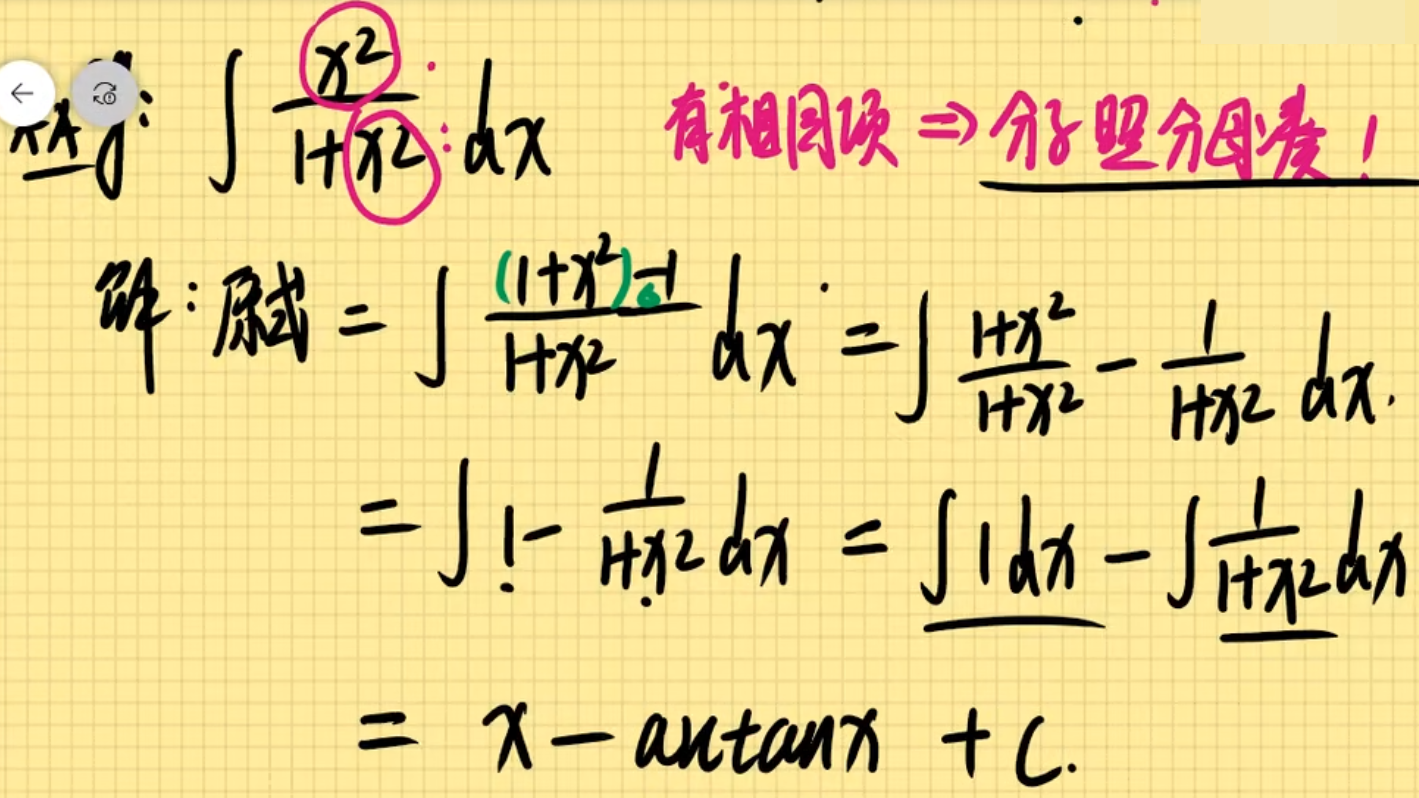 例: ∫ x²/(1+x²) dx 有相同项 ⇒ 分子照分母凑!
解: 原式 = ∫ ((1+x²)-1)/(1+x²) dx = ∫ (1+x²)/(1+x²) - 1/(1+x²) dx.
= ∫ 1 - 1/(1+x²) dx = ∫ 1 dx - ∫ 1/(1+x²) dx
= x - arctanx + C.